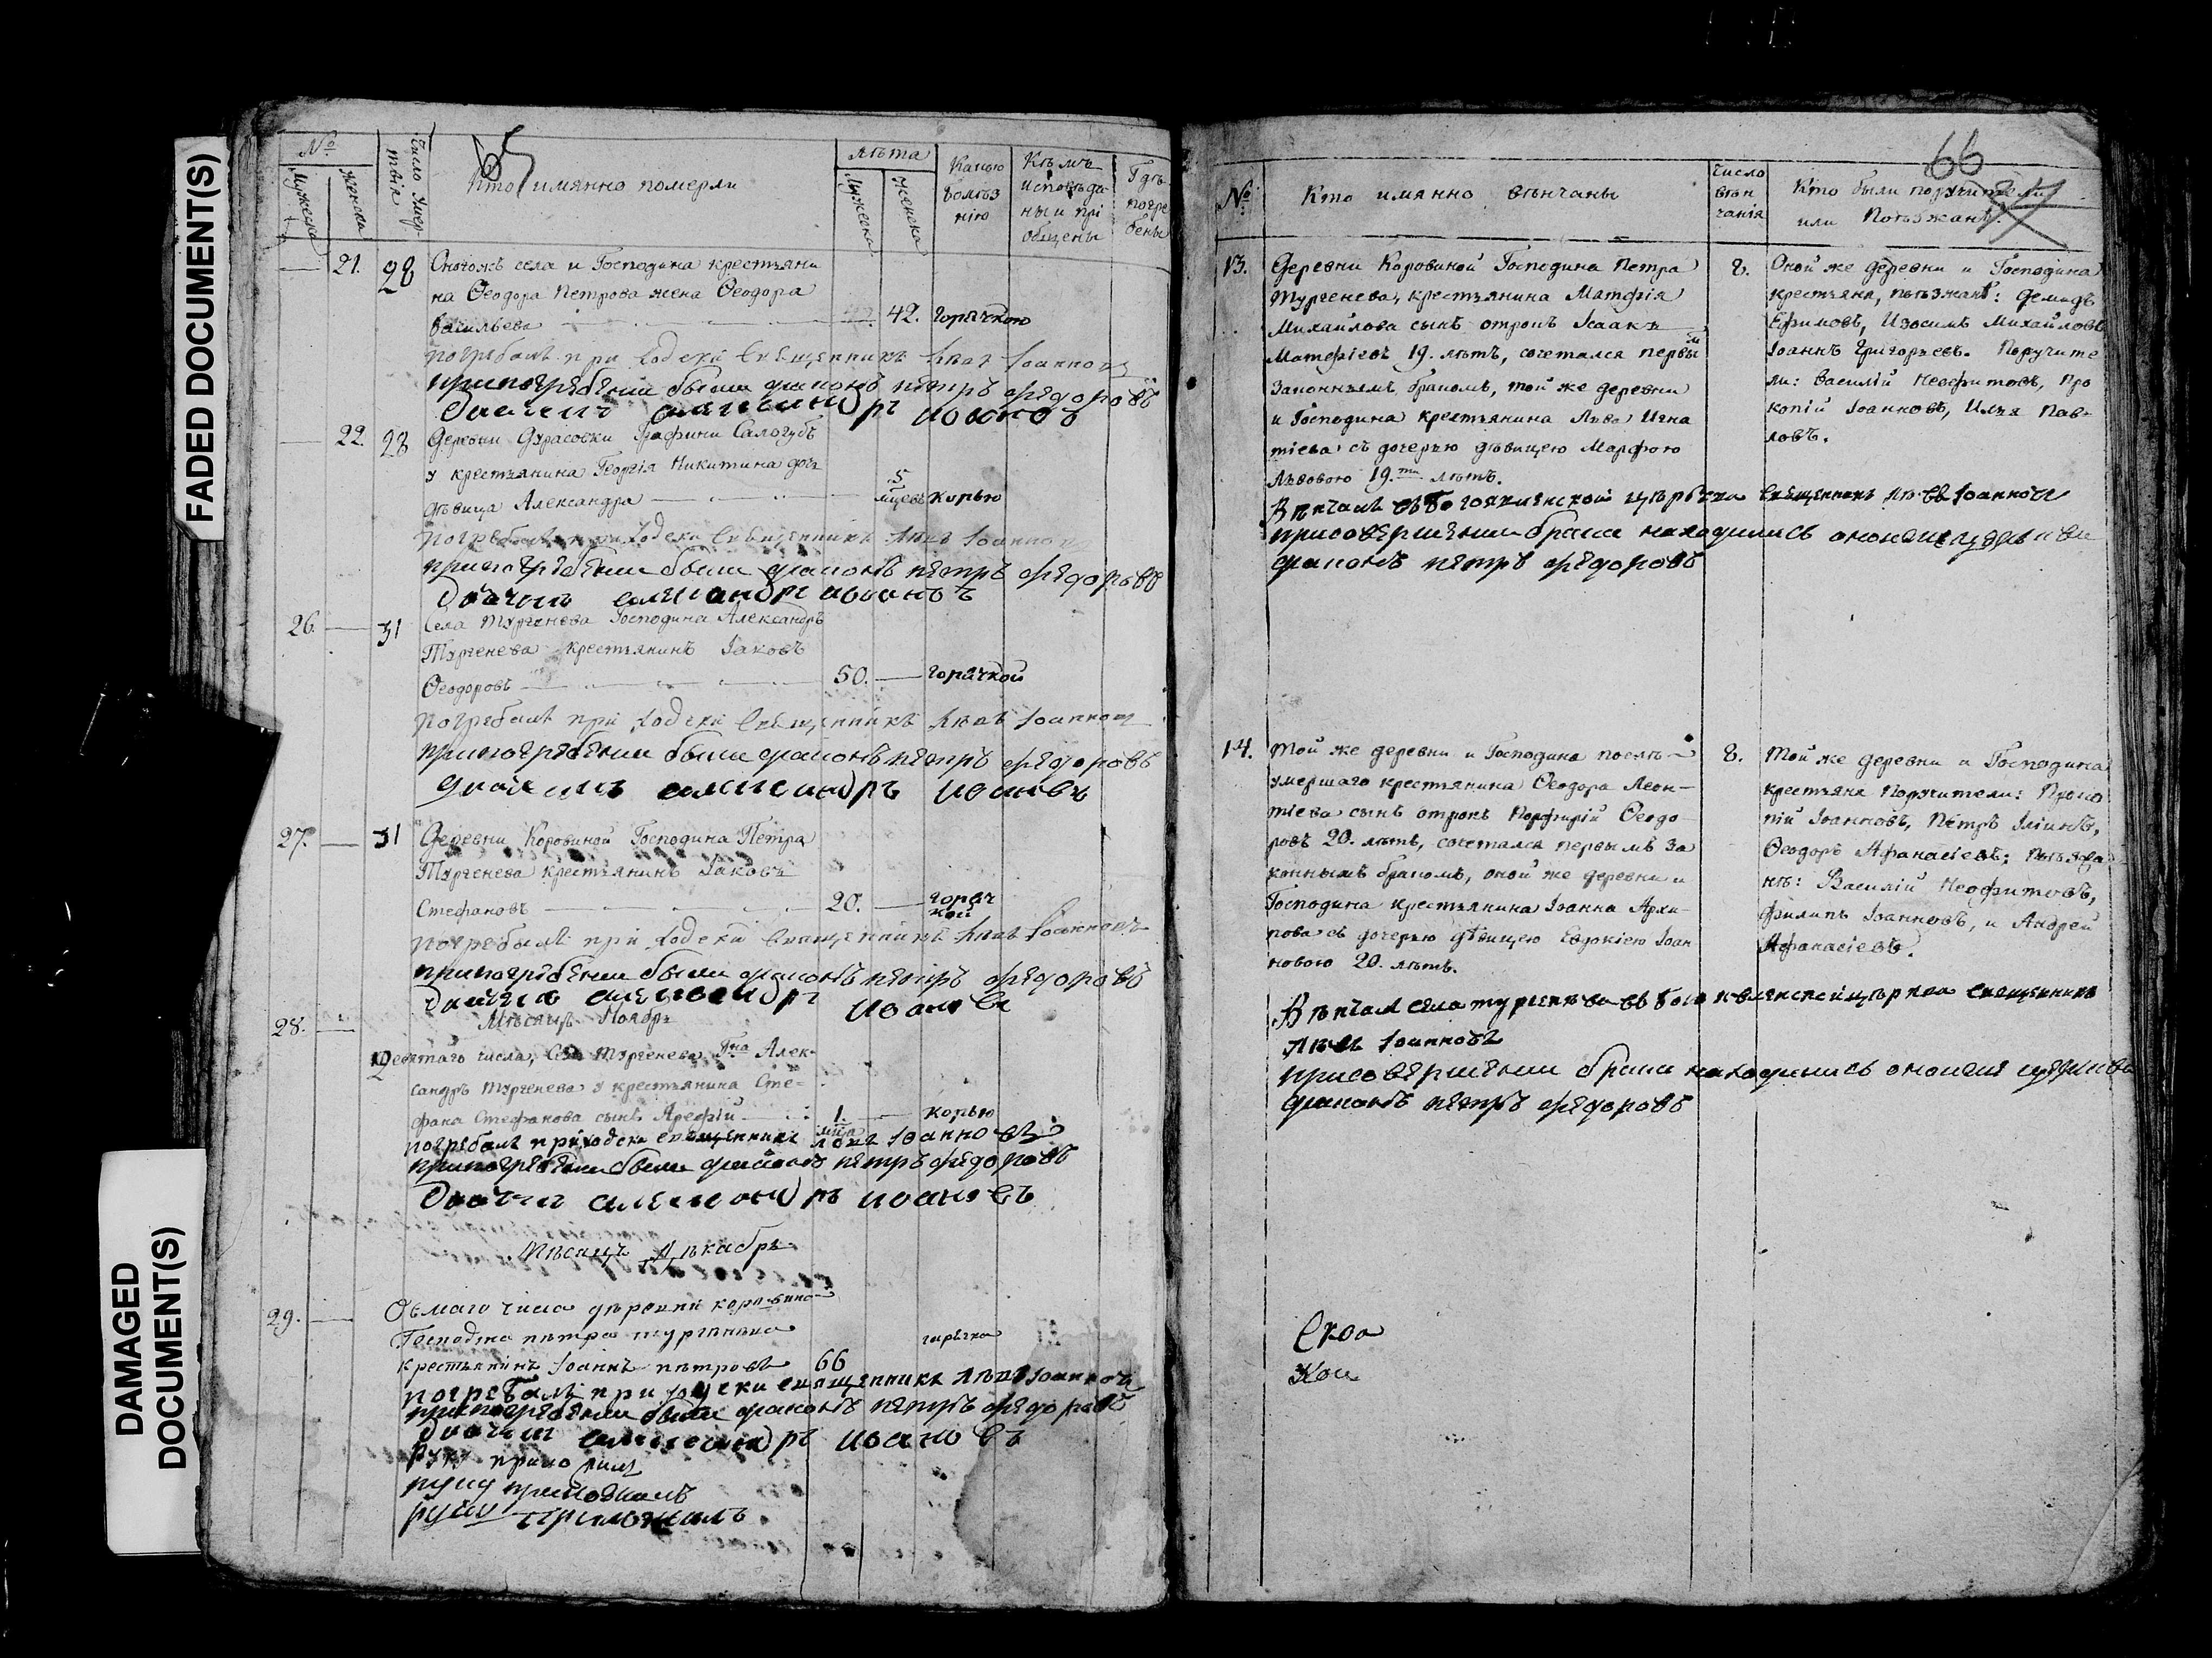 FADED DOCUMENT(S)
DAMAGED
DOCUMENT(S)
65
№
Мужеска
Женска
Число Умер-
твія
Кто имянно померли
лѣта
Мужеска
Женска
Какою
болѣз
нію
Кѣмъ
исповѣда
ны и прі
общены
Гдѣ
погре
бены
21. 28 села и Господина крестьяни
на Ѳеодора Петрова жена Ѳеодора
Васильева 42. горячкою
погребалъ приходски Священникъ Левъ Іоанновъ
припогребении были диаконъ петръ федоровъ
дьячекъ александръ иоановъ
22. 28 Деревни Дурасовки Графини Салогубъ
у крестьянина Георгія Никитина дочь
дѣвица Александра 5 мцевъ корью
погребалъ приходски Священникъ Левъ Іоанновъ
припогребении были диаконъ петръ федоровъ
дьячекъ александръ иоановъ
26. 31 Села Тургенева Господина Александръ
Тургенева крестьянинъ Іаковъ
Ѳеодоровъ 50. горячкой
погребалъ приходски Священникъ Левъ Іоанновъ
припогребении были диаконъ петръ федоровъ
дьячекъ александръ иоановъ
27. 31 Деревни Коровиной Господина Петра
Тургенева крестьянинъ Іаковъ
Стефановъ 20. горяч
кой
погребалъ приходски Священникъ Левъ Іоанновъ
припогребении были диаконъ петръ федоровъ
дьячекъ александръ иоановъ
Мѣсяцъ Ноябрь
28. Девятаго числа, Села Тургенева Гна Алек-
сандръ Тургенева у крестьянина Сте=
фана Стефанова сынъ Арефій 1. мца корью
погребалъ приходски священникъ левъ Іоанновъ
припогребении были диаконъ петръ федоровъ
дьячекъ александръ иоановъ
Мѣсяцъ Декабрь
29. Осмаго числа деревни коровино
Господина петра тургенева горячка
крестьянинъ Іоаннъ петровъ 66
погребалъ приходски священникъ левъ Іоанновъ
припогребении были диаконъ петръ федоровъ
дьячекъ александръ иоановъ
руку приложилъ
руку приложилъ
руку приложилъ
66
№
Кто имянно вѣнчаны
Число
вѣн
чанія
Кто были поручители
или Поѣзжанѣ.
13. Деревни Коровиной Господина Петра
Тургенева, крестьянина Матфія
Михайлова сынъ отрокъ Ісаакъ
Матфіевъ 19. лѣтъ, сочетался первый
законнымъ бракомъ, той же деревни
и Господина крестьянина Льва Игна
тіева съ дочерью дѣвицею Марфою
Львовою 19.ти лѣтъ.
8. Оной же деревни и Господина
крестьяна, поѣзжанѣ: Демидъ
Ефимовъ, Изосимъ Михайловъ
Іоаннъ Григорьевъ. Поручите
ли: Василій Неофитовъ, Про
копій Іоанновъ, Илья Пав-
ловъ.
Вѣнчалъ въ богоявленской церькви священникъ левъ Іоанновъ
присовершении брака находились
диаконъ петръ федоровъ
14. Той же деревни и Господина послѣ
умершаго крестьянина Ѳеодора Леон-
тіева сынъ отрокъ Порфирій Ѳеодо
ровъ 20. лѣтъ, сочетался первымъ за
коннымъ бракомъ, оной же деревни и
Господина крестьянина Іоанна Архи-
пова съ дочерью дѣвицею Евдокіею Іоан
новою 20. лѣтъ.
8. Той же деревни и Господина
крестьяна Поручители: Проко
пій Іоанновъ, Петръ Іліинъ,
Ѳеодоръ Афанасіевъ; поѣзжа
нѣ: Василій Неофитовъ,
Филипъ Іоанновъ, и Андрей
Афанасіевъ.
Вѣнчал села тургенева въ богоявленской церква священникъ
левъ Іоанновъ
присовершении брака находились
диаконъ петръ федоровъ